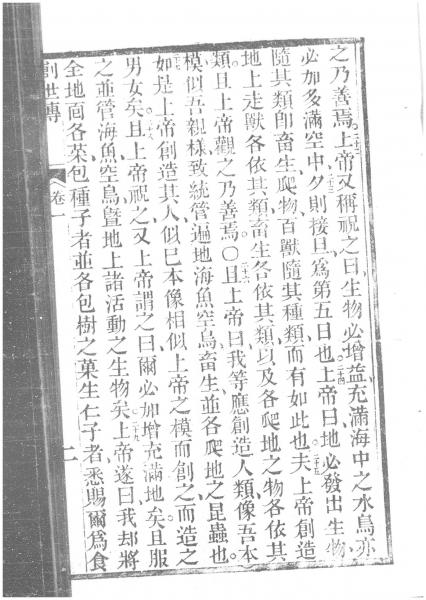 之乃善焉。二十二上帝又稱祝之曰、生物必增益、充滿海中之水、鳥亦
必加多滿空中。二十三夕則接旦、爲第五日也。二十四上帝曰、地必發出生物
隨其類、卽畜生、爬物、百獸隨其種類、而有如此也。二十五夫上帝創造
地上走獸各依其類、畜生各依其類、以及各爬地之物各依其
類、且上帝觀之乃善焉。〇二十六且上帝曰、我等應創造人類、像吾本
模似吾親樣、致統管遍地、海魚、空鳥、畜生、並各爬地之昆蟲也。
二十七如是上帝創造其人、似己本像相似上帝之模而創之、而造之
男女矣。二十八且上帝祝之、又上帝謂之曰、爾必加增充滿地矣、且服
之、並管海魚、空鳥、曁地上諸活動之生物矣。二十九上帝遂曰、我却將
全地面各菜包種子者、並各包樹之菓生仁子者、悉賜爾爲食
創世傳
卷一
二